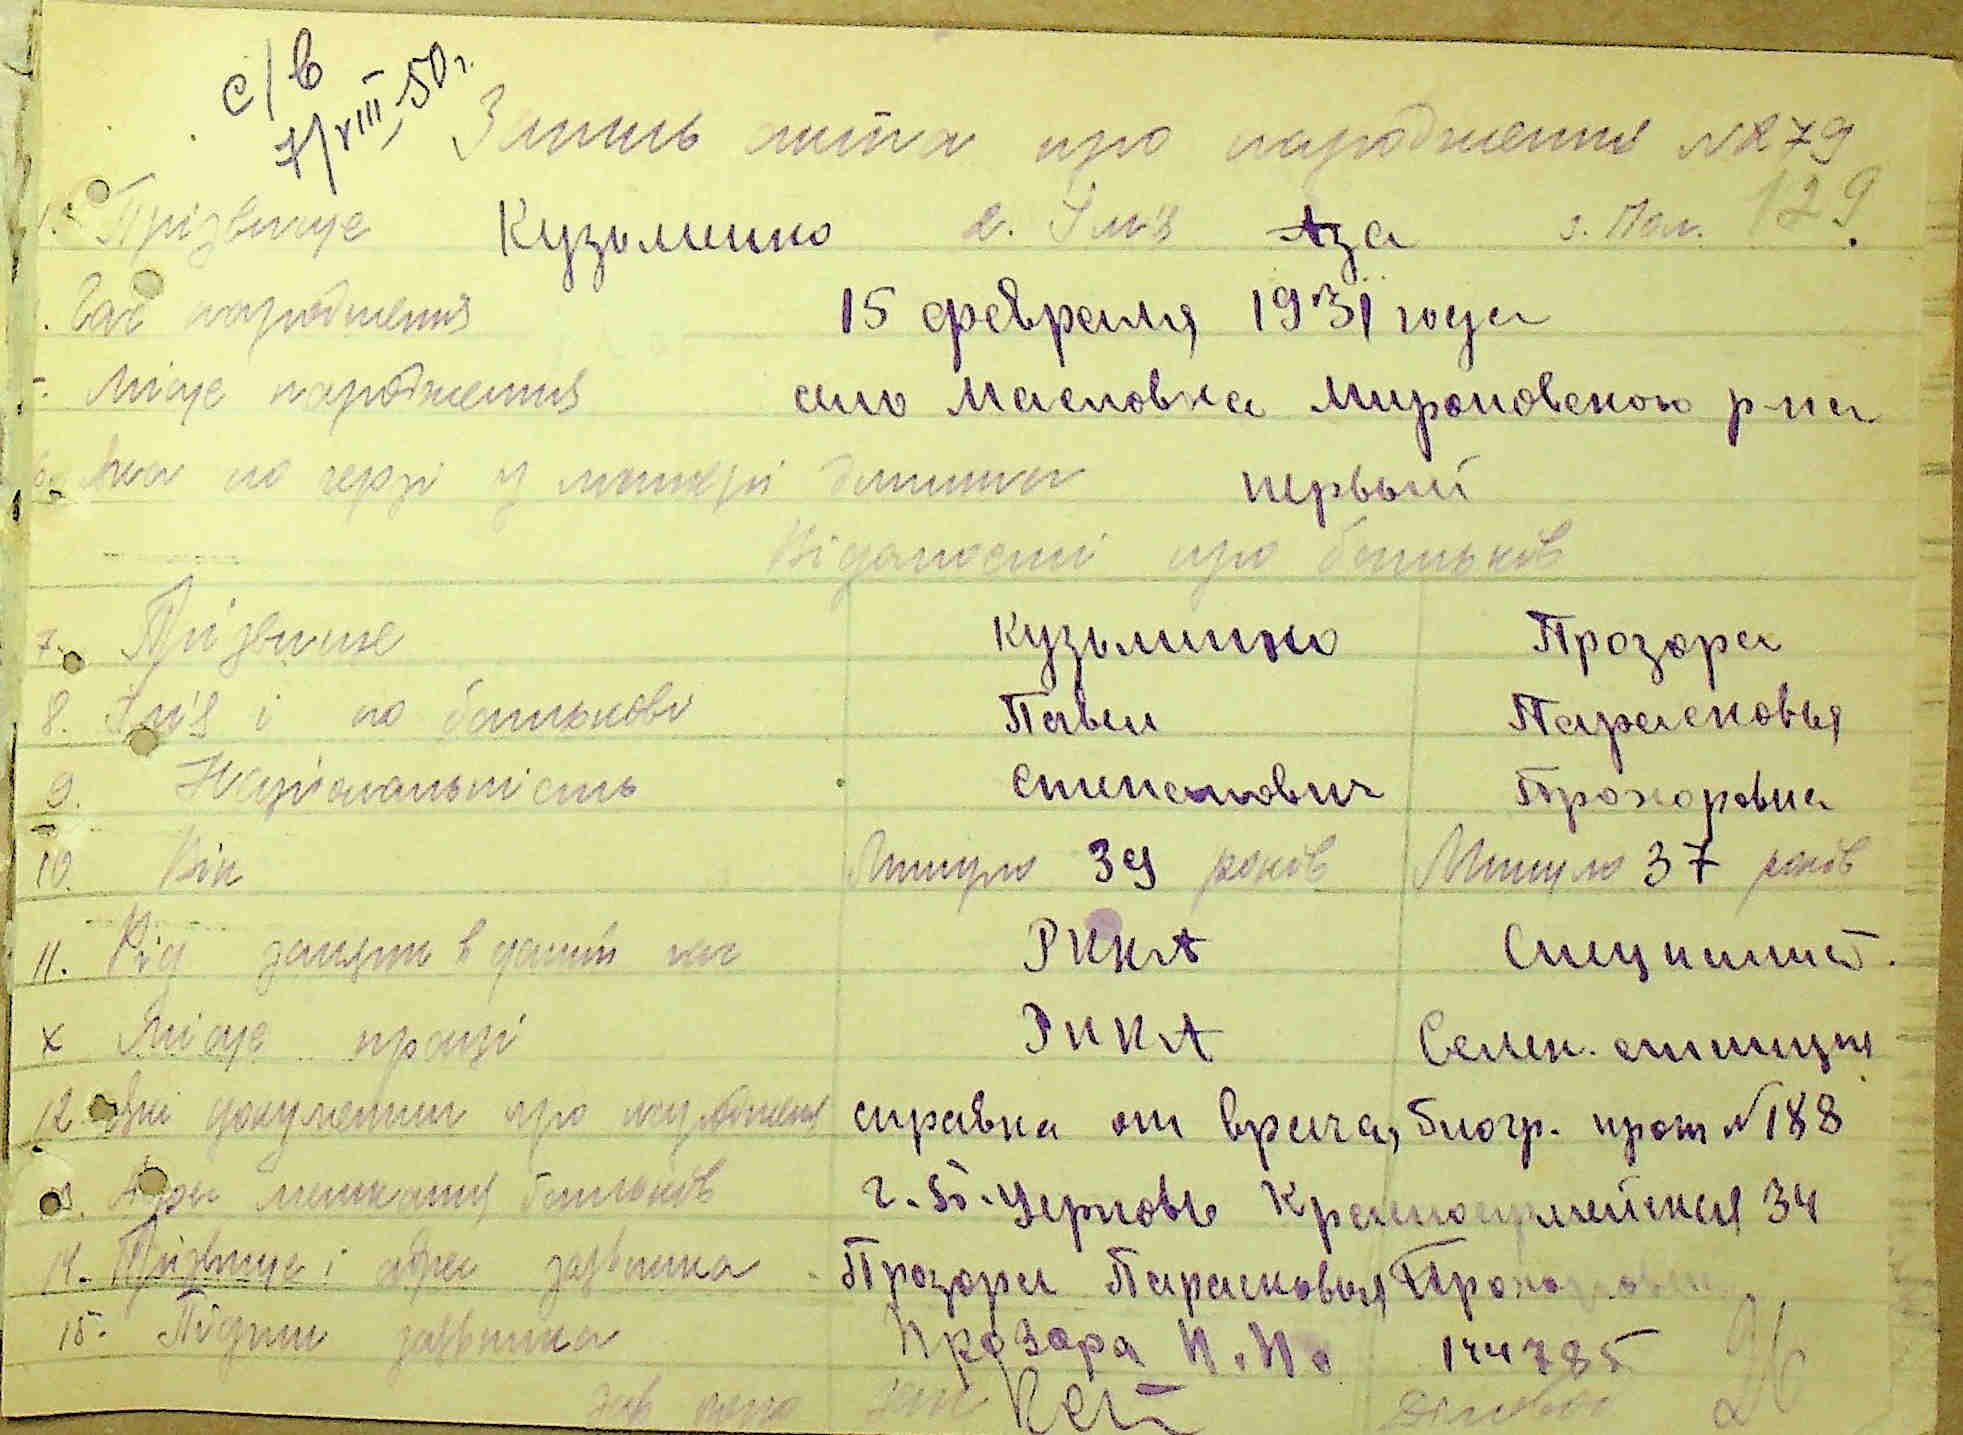 с/в
7/VIII, 50 г.
Запись акта про народження № 79
129
1. Прізвище Кузьменко 2. Ім'я Аза 3. Пол.
Час народження 15 февраля 1931 года
Місце народження село Масловка Мироновского р-на
Яка по черзі у матері дитина первый
Відомості про батьків
7. Прізвище Кузьменко Прозора
8. Ім'я і по батькові Павел Парасковья
9. Національність Степанович Прохоровна
10. Вік Минуло 39 років Минуло 37 років
11. Рід занять в даний час РККА Специалист.
х Місце праці РККА Селек. станция
12. Які документи про народження справка от врача, биогр. прот № 188
13. Адрес мешкання батьків г. Б-Церковь Красноармейская 34
14. Прізвище і адрес заявника Прозора Парасковья Прохоровна
15. Підпис заявника Прозора П. П. 144785
Зав бюро Загс Діловод